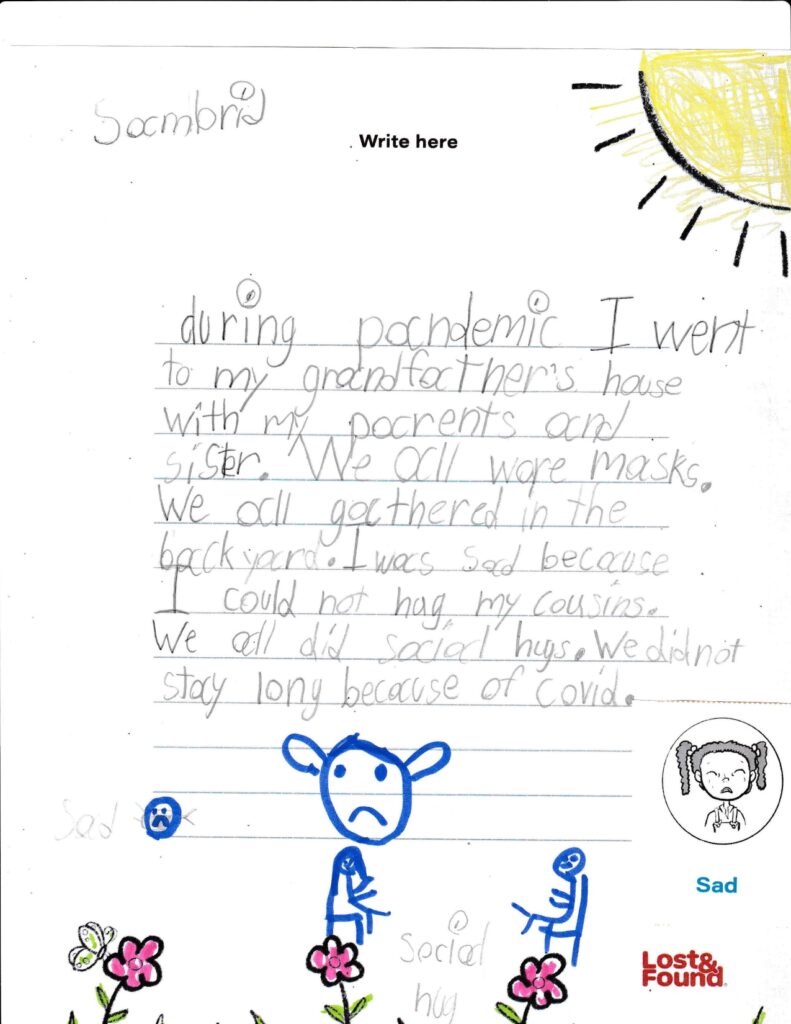 Write here
during pandemic I went
to my grandfather's house
with my parents and
sister. We all wore masks.
We all gathered in the
backyard. I was sad because
I could not hug my cousins.
We all did social hugs. We did not
stay long because of covid.
Sad
Sad
social
hug
Lost&
Found